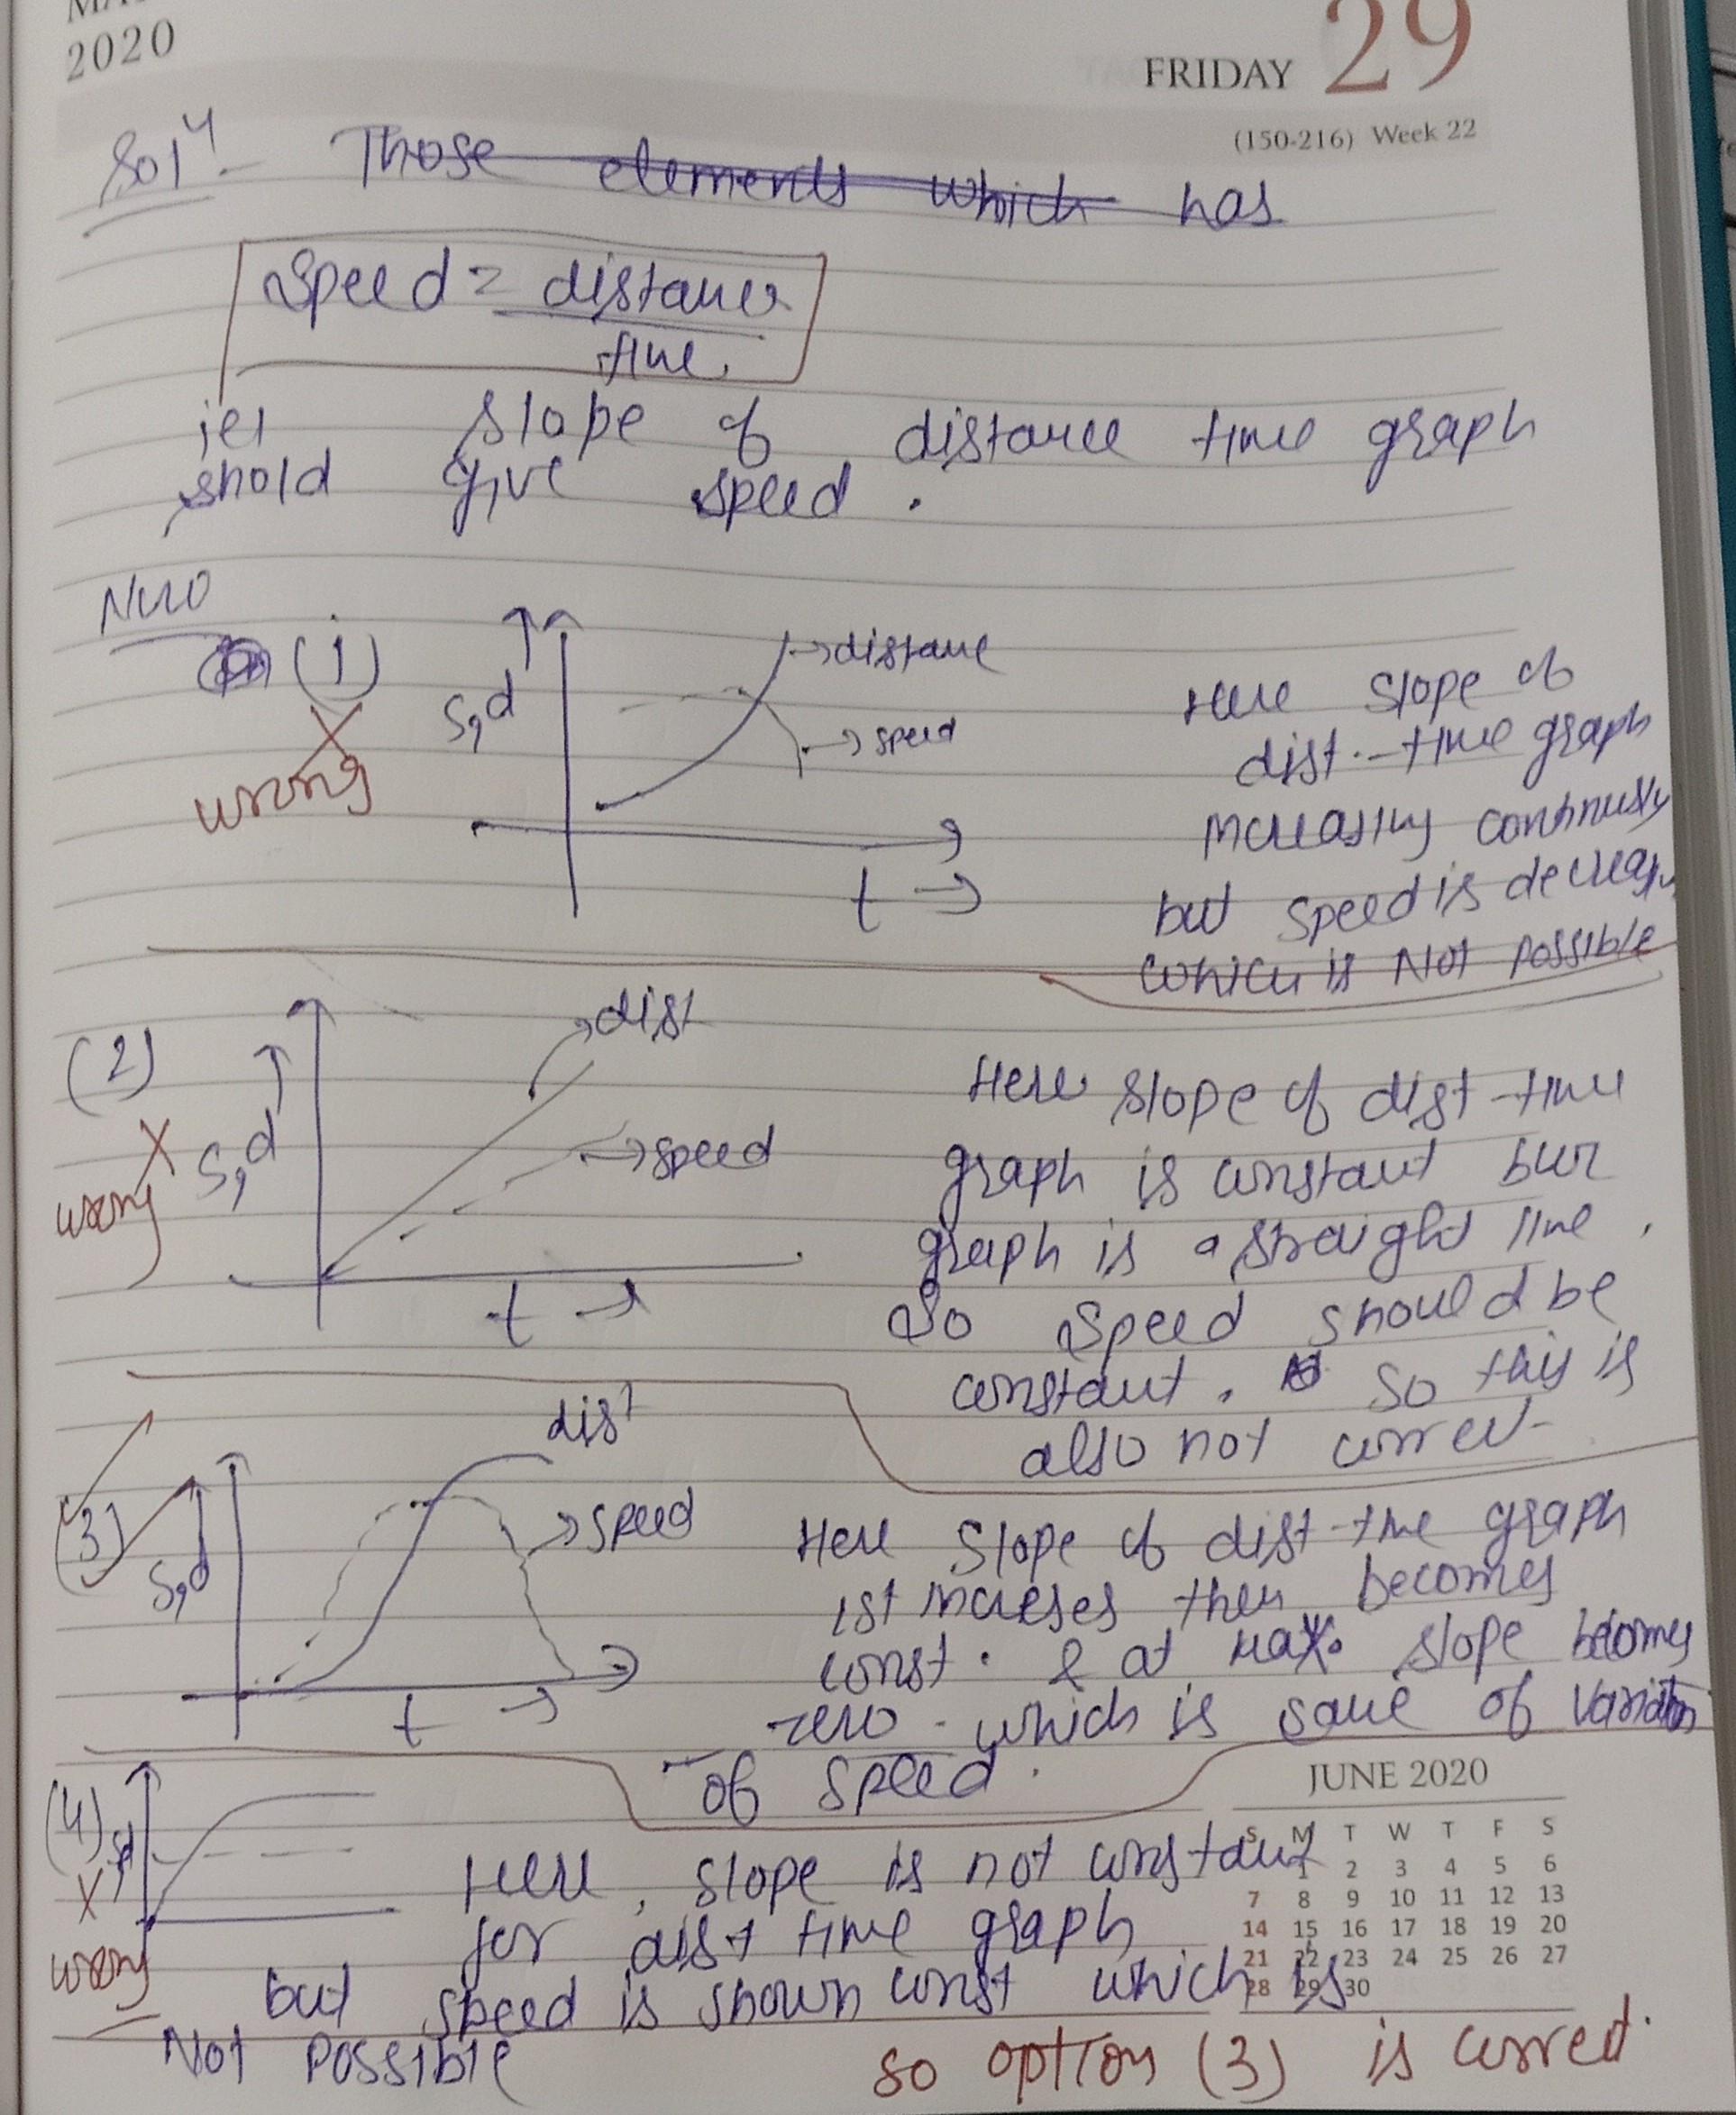 2020
FRIDAY 29
(150-216) Week 22
Soln. Those elements which has
Speed = distance
time
ie, slope of distance time graph
shold give speed.
Now
(1)
distane
S,d
speed
wrong
t
Here slope of
dist.-time graph
increasing continusly
but speed is decreas
which is Not possible
(2)
dist
S,d
speed
wrong
t
Here slope of dist-time
graph is constant bur
graph is a straight line.
So speed should be
constant. so this is
also not correct
(3)
dist
S,d
speed
t
Here slope of dist-time graph
1st increses then becomes
const. & at max. slope becomes
zero. which is same of variation
of speed.
(4)
wrong
Here, slope is not constant
for dist time graph
but speed is shown const which is
Not possible
so option (3) is correct.
JUNE 2020
S M T W T F S
1 2 3 4 5 6
7 8 9 10 11 12 13
14 15 16 17 18 19 20
21 22 23 24 25 26 27
28 29 30